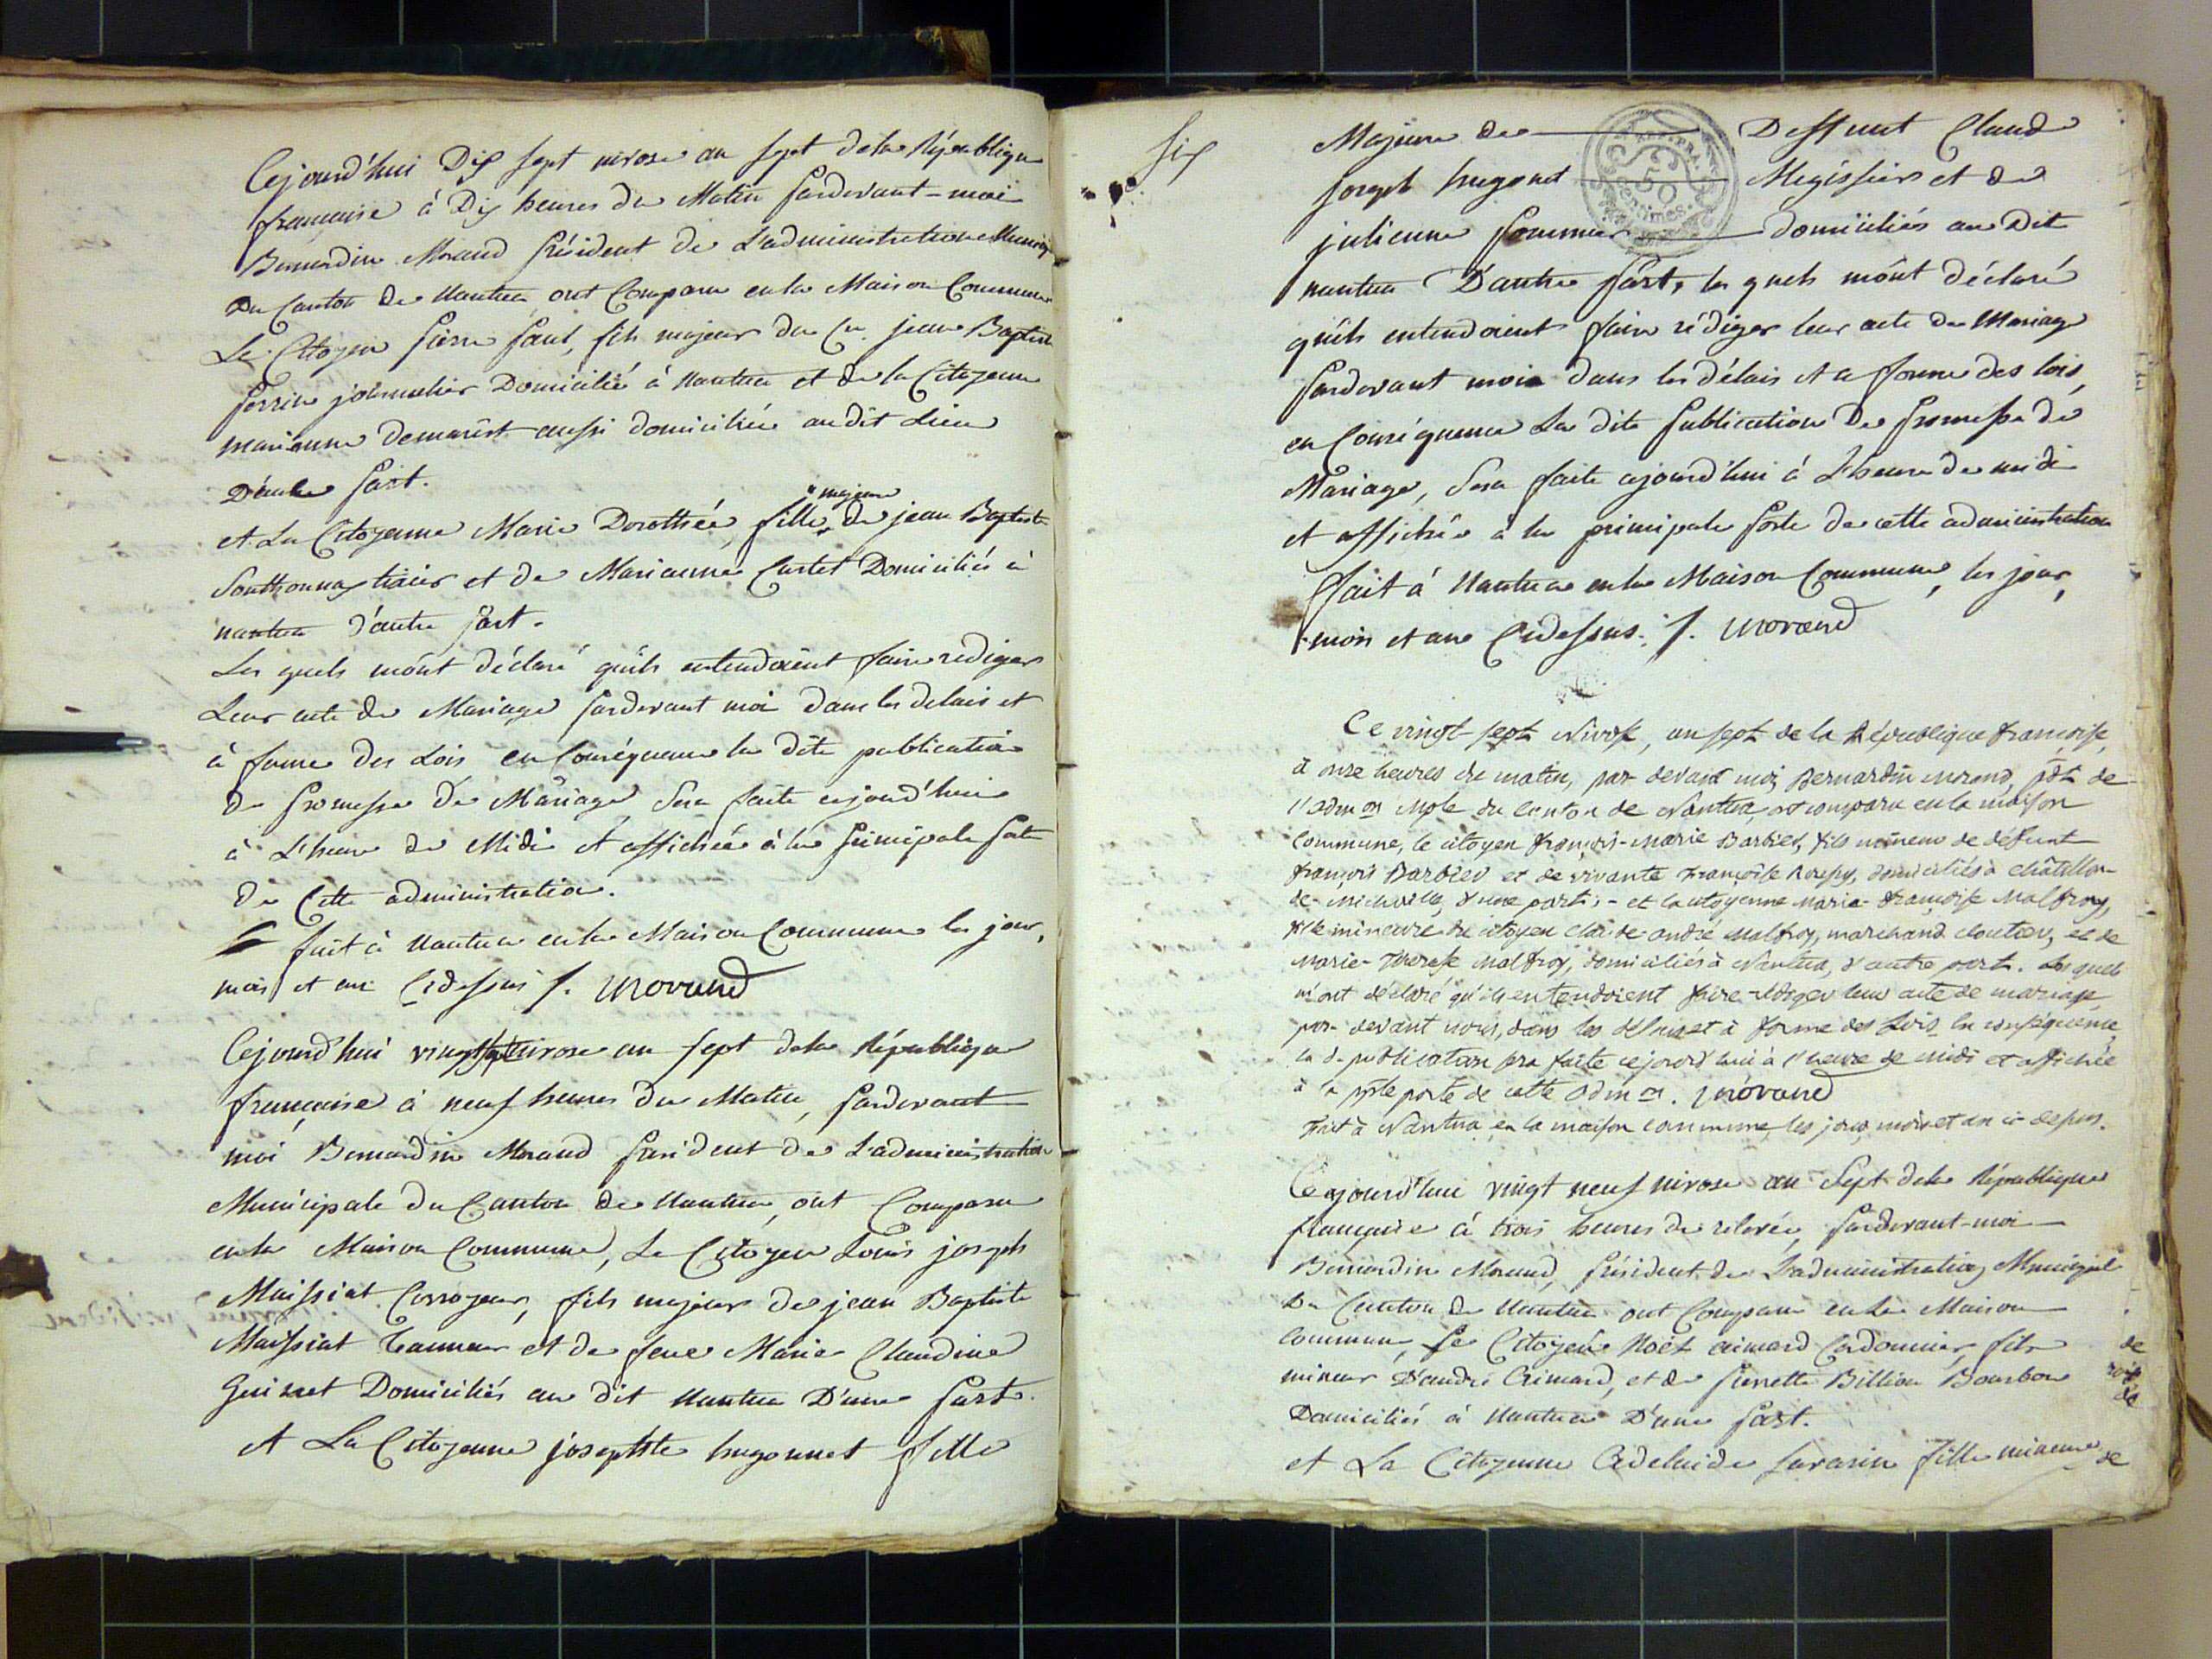 Cejourd'hui Dix sept nivose an sept de la République
française à Dix heures du Matin pardevant-moi
Bernardin Morand Président de L'administration Municip
du Canton de Nantua, ont Comparu en la Maison Commune
Le Citoyen Pierre Paul, fils majeur du Cn. jean Baptiste
perrin journalier Domicilié à Nantua et de la Citoyenne
marianne demarest aussi domiciliée audit Lieu
part.
et La Citoyenne Marie Dorothée, fille majeure de jean Baptiste
Southonnax et de Marianne Domiciliés à
nantua d'autre part.
Les quels m'ont déclaré qu'ils entendoient faire rediger
Leur acte de Mariage pardevant moi dans les délais et
à forme des Lois en Conséquence la dite publication
de promesse de Mariage sera faite cejourd'hui
à L'heure de Midi et affichée à la Principale porte
de Cette administration.
fait à Nantua en la Maison Commune les jour,
mois et an Cidessus f. Morand
Cejourd'hui vingt sept nivose an sept de la République
française à neuf heures du Matin, pardevant
moi Bernardin Morand président de L'administration
Municipale du Canton de Nantua, ont Comparu
en la Maison Commune, Le Citoyen Louis joseph
Maissiat Corroyeur, fils majeur de jean Baptiste
Maissiat Tanneur et de feue Marie Claudine
Guinet Domiciliés au dit Nantua D'une part.
et La Citoyenne josephte hugonnet fille
six
Majeure de Deffunt Claude
joseph hugonet Megissier et de
julienne pommier domiciliés au Dit
nantua D'autre part, les quels m'ont déclaré
qu'ils entendoient faire rédiger leur acte de Mariage
pardevant moi dans les délais et a forme des lois,
en Conséquence La dite publication de promesse de
Mariage, sera faite cejourd'hui à L'heure de midi
et affichée à la principale porte de cette administration
fait à Nantua en la Maison Commune, les jour,
mois et an Cidessus. f. Morand
50 centimes
Ce vingt-sept Nivose, an sept de la République françoise,
à onze heures du matin, par devant moi, Bernardin morand, pdt de
l'admon mple du canton de Nantua, ont comparu en la maison
Commune, le citoyen françois-marie Barbier, fils mineur de défunt
françois Barbier et de vivante Françoise domiciliés à Châtillon-
de-michaille, d'une part; - et la citoyenne marie-françoise Malfroy,
fille mineure du citoyen Claude andré Malfroy, marchand cloutier, et de
Marie-Therese Malfroy, domiciliés à Nantua, d'autre part. Lesquels
m'ont déclaré qu'ils entendoient faire rédiger leur acte de mariage
par devant nous, dans les délais et à forme des Lois. En conséquence
la d. publication sera faite cejourd'hui à l'heure de midi et affichée
à la pple porte de cette admon. Morand
Fait à Nantua en la maison commune, les jour, mois et an ci-dessus.
Cejourd'hui vingt neuf nivose an Sept de la République
française à trois heures de relevée, pardevant-moi
Bernardin Morand, président de L'administration Municipale
du Canton de Nantua ont Comparu en la Maison
Commune, Le Citoyen Noël aimard Cordonnier, fils
mineur D'andré Aimard, et de pierrette Billion Bourbon
Domiciliés à Nantua D'une part.
et La Citoyenne Adelaide Savarin fille mineure de